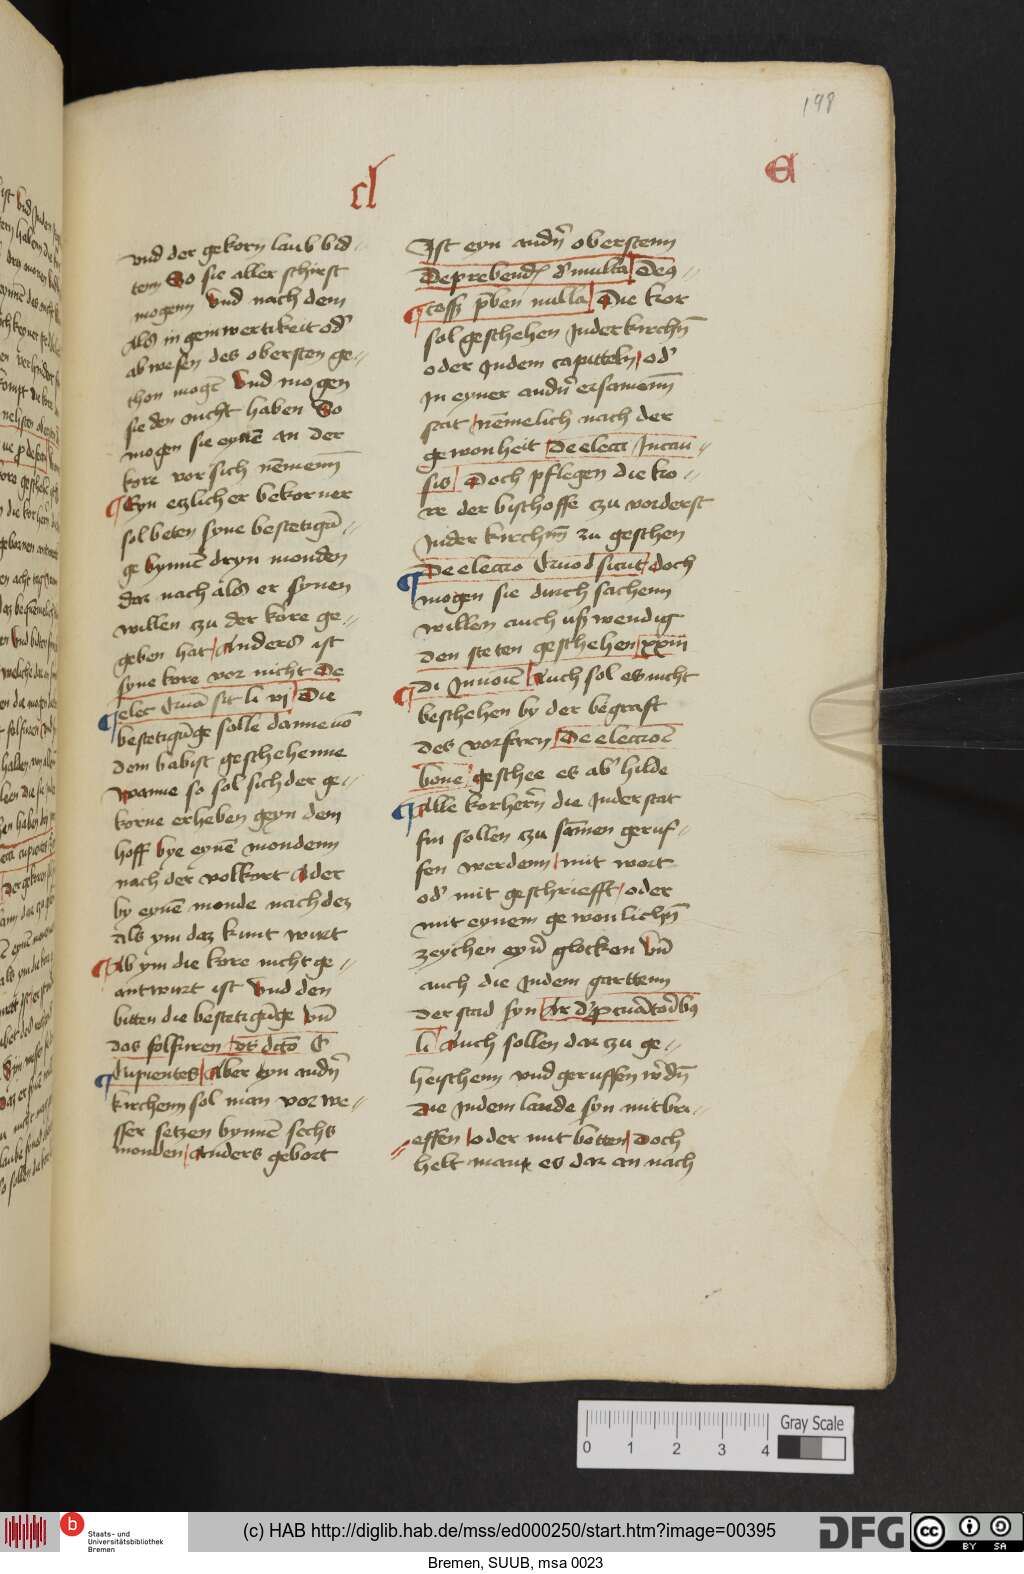 198
cl
E
vnd der gekorn laub bid
tem So sie aller schirest
mogenn vnd nach dem
Als in genwertikeit od'
abwesen des obersten ge-
thon mogē Vnd mogen
sie den nicht haben So
mogen sie eynē an der
kore vor sich nēmenn
Eyn etzlicher bekorner
sol beten syne bestetigū-
ge bynnē dryn monden
dar nach als er synen
willen czu der kore ge-
geben hat anders ist
syne kore vor nicht De
elec Quā sit li vj Die
bestetigūge solle danne vō
dem babist geschehenne
wanne so sol sich der ge-
korne erheben geyn dem
hoff bye eynē mondenn
nach der volkort Ader
by eynē monde nach dez
als ym daz kunt wirt
Ab ym die kore nicht ge-
antwurt ist vnd den
bitten die bestetigūge vn̄
das solfuren
Cupientes Aber eyn andn̄
kirchenn sol man vorwe-
sser setzen bynnē sechs
monden anders gebort
Ist eyn andn̄ oberstenn
De prebend d' multa De9
cess p̄ben nulla Die kor
sol geschehen Inder kirchn̄
oder Indem capitteln od'
In eyner andn̄ ersamenn
stat nēmelich nach der
gewonheit De elect Incau-
sis Doch pflegen die ko-
re der bischoffe czu vorderst
Inder kirchnn zu geschen
De electio Quod sicut doch
mogen sie durch sachenn
willen auch uszwendig
den steten geschehen xxiii
di In noīe Auch sol es nicht
beschehen by der begraft
des vorfarn De electiōē
bone geschee es ab' hilde
Alle korhern̄ die Inder stat
sin sollen czu sāmen geruf-
fen werdenn mit wort
od' mit geschriefft oder
mit eynem gewonlichn̄
zeychen eyn̄ glocken vn̄
auch die Indem garttenn
der stad syn
li Auch sollen dar zu ge-
heischenn vnd geruffen w'dn̄
die Indem lande syn mitbri-
effen oder mit botten Doch
helt man es dar an nach
0 1 2 3 4
Gray Scale
b
Staats- und
Universitätsbibliothek
Bremen
(c) HAB http://diglib.hab.de/mss/ed000250/start.htm?image=00395
DFG
cc BY SA
Bremen, SUUB, msa 0023